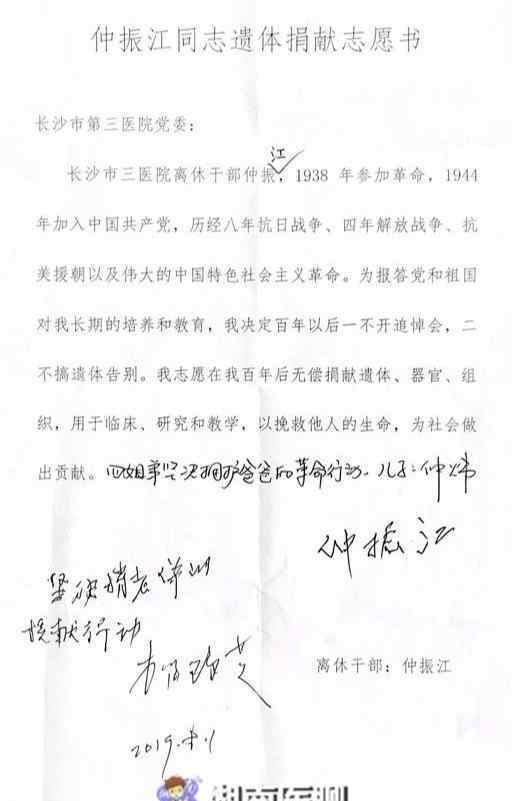 仲振江同志遗体捐献志愿书
长沙市第三医院党委：
长沙市三医院离休干部仲振江，1938 年参加革命，1944
年加入中国共产党，历经八年抗日战争、四年解放战争、抗
美援朝以及伟大的中国特色社会主义革命。为报答党和祖国
对我长期的培养和教育，我决定百年以后一不开追悼会，二
不搞遗体告别。我志愿在我百年后无偿捐献遗体、器官、组
织，用于临床、研究和教学，以挽救他人的生命，为社会做
出贡献。四姐弟坚决拥护爸爸的革命行动. 儿子：仲炜
仲振江
坚决
捐献行动
离休干部：仲振江
2019.